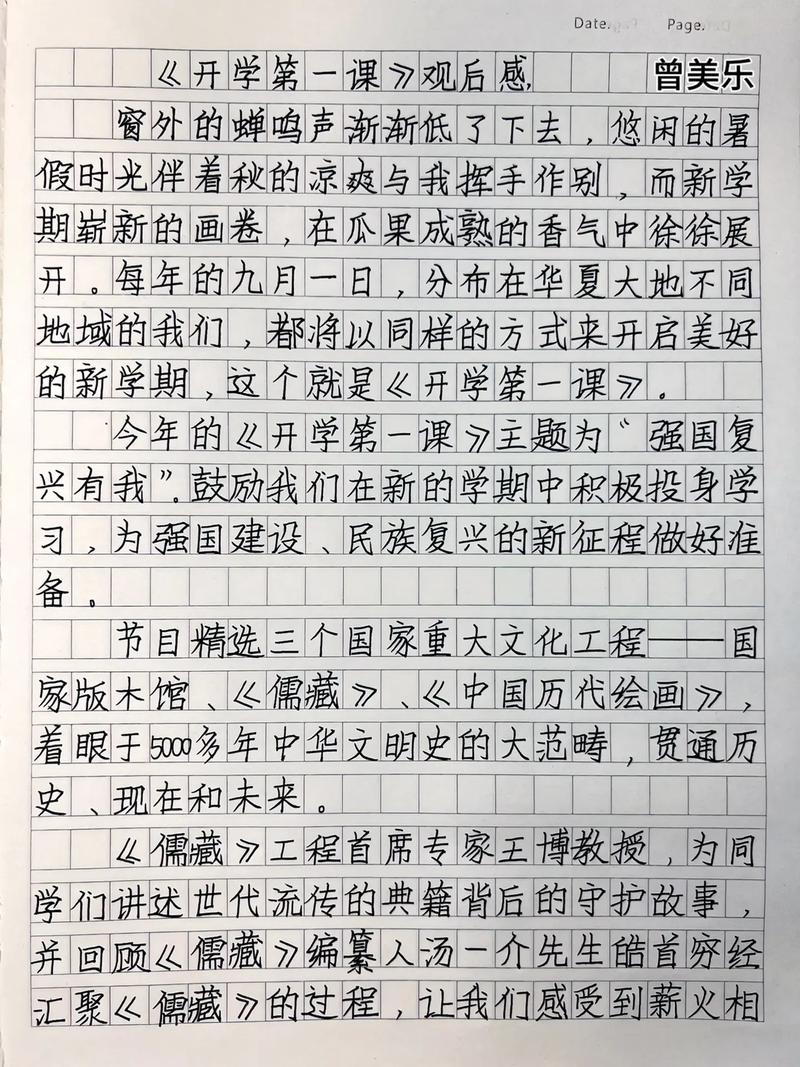 Date. Page.
《开学第一课》观后感, 曾美乐
窗外的蝉鸣声渐渐低了下去，悠闲的暑
假时光伴着秋的凉爽与我挥手作别，而新学
期崭新的画卷，在瓜果成熟的香气中徐徐展
开。每年的九月一日，分布在华夏大地不同
地域的我们，都将以同样的方式来开启美好
的新学期，这个就是《开学第一课》。
今年的《开学第一课》主题为“强国复
兴有我”。鼓励我们在新的学期中积极投身学
习，为强国建设、民族复兴的新征程做好准
备。
节目精选三个国家重大文化工程——国
家版木馆、《儒藏》、《中国历代绘画》，
着眼于5000多年中华文明史的大范畴，贯通历
史、现在和未来。
《儒藏》工程首席专家王博教授，为同
学们讲述世代流传的典籍背后的守护故事，
并回顾《儒藏》编纂人汤一介先生皓首穷经
汇聚《儒藏》的过程，让我们感受到薪火相